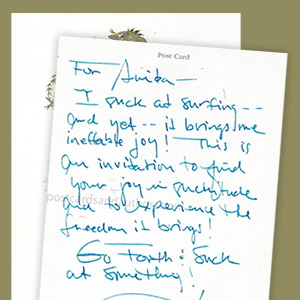 Post Card
For Anita—
I suck at surfing --
and yet -- it brings me
ineffable joy! This is
an invitation to find
your joy in suckitude
and to experience the
freedom it brings!
Go Forth & Suck
at something!